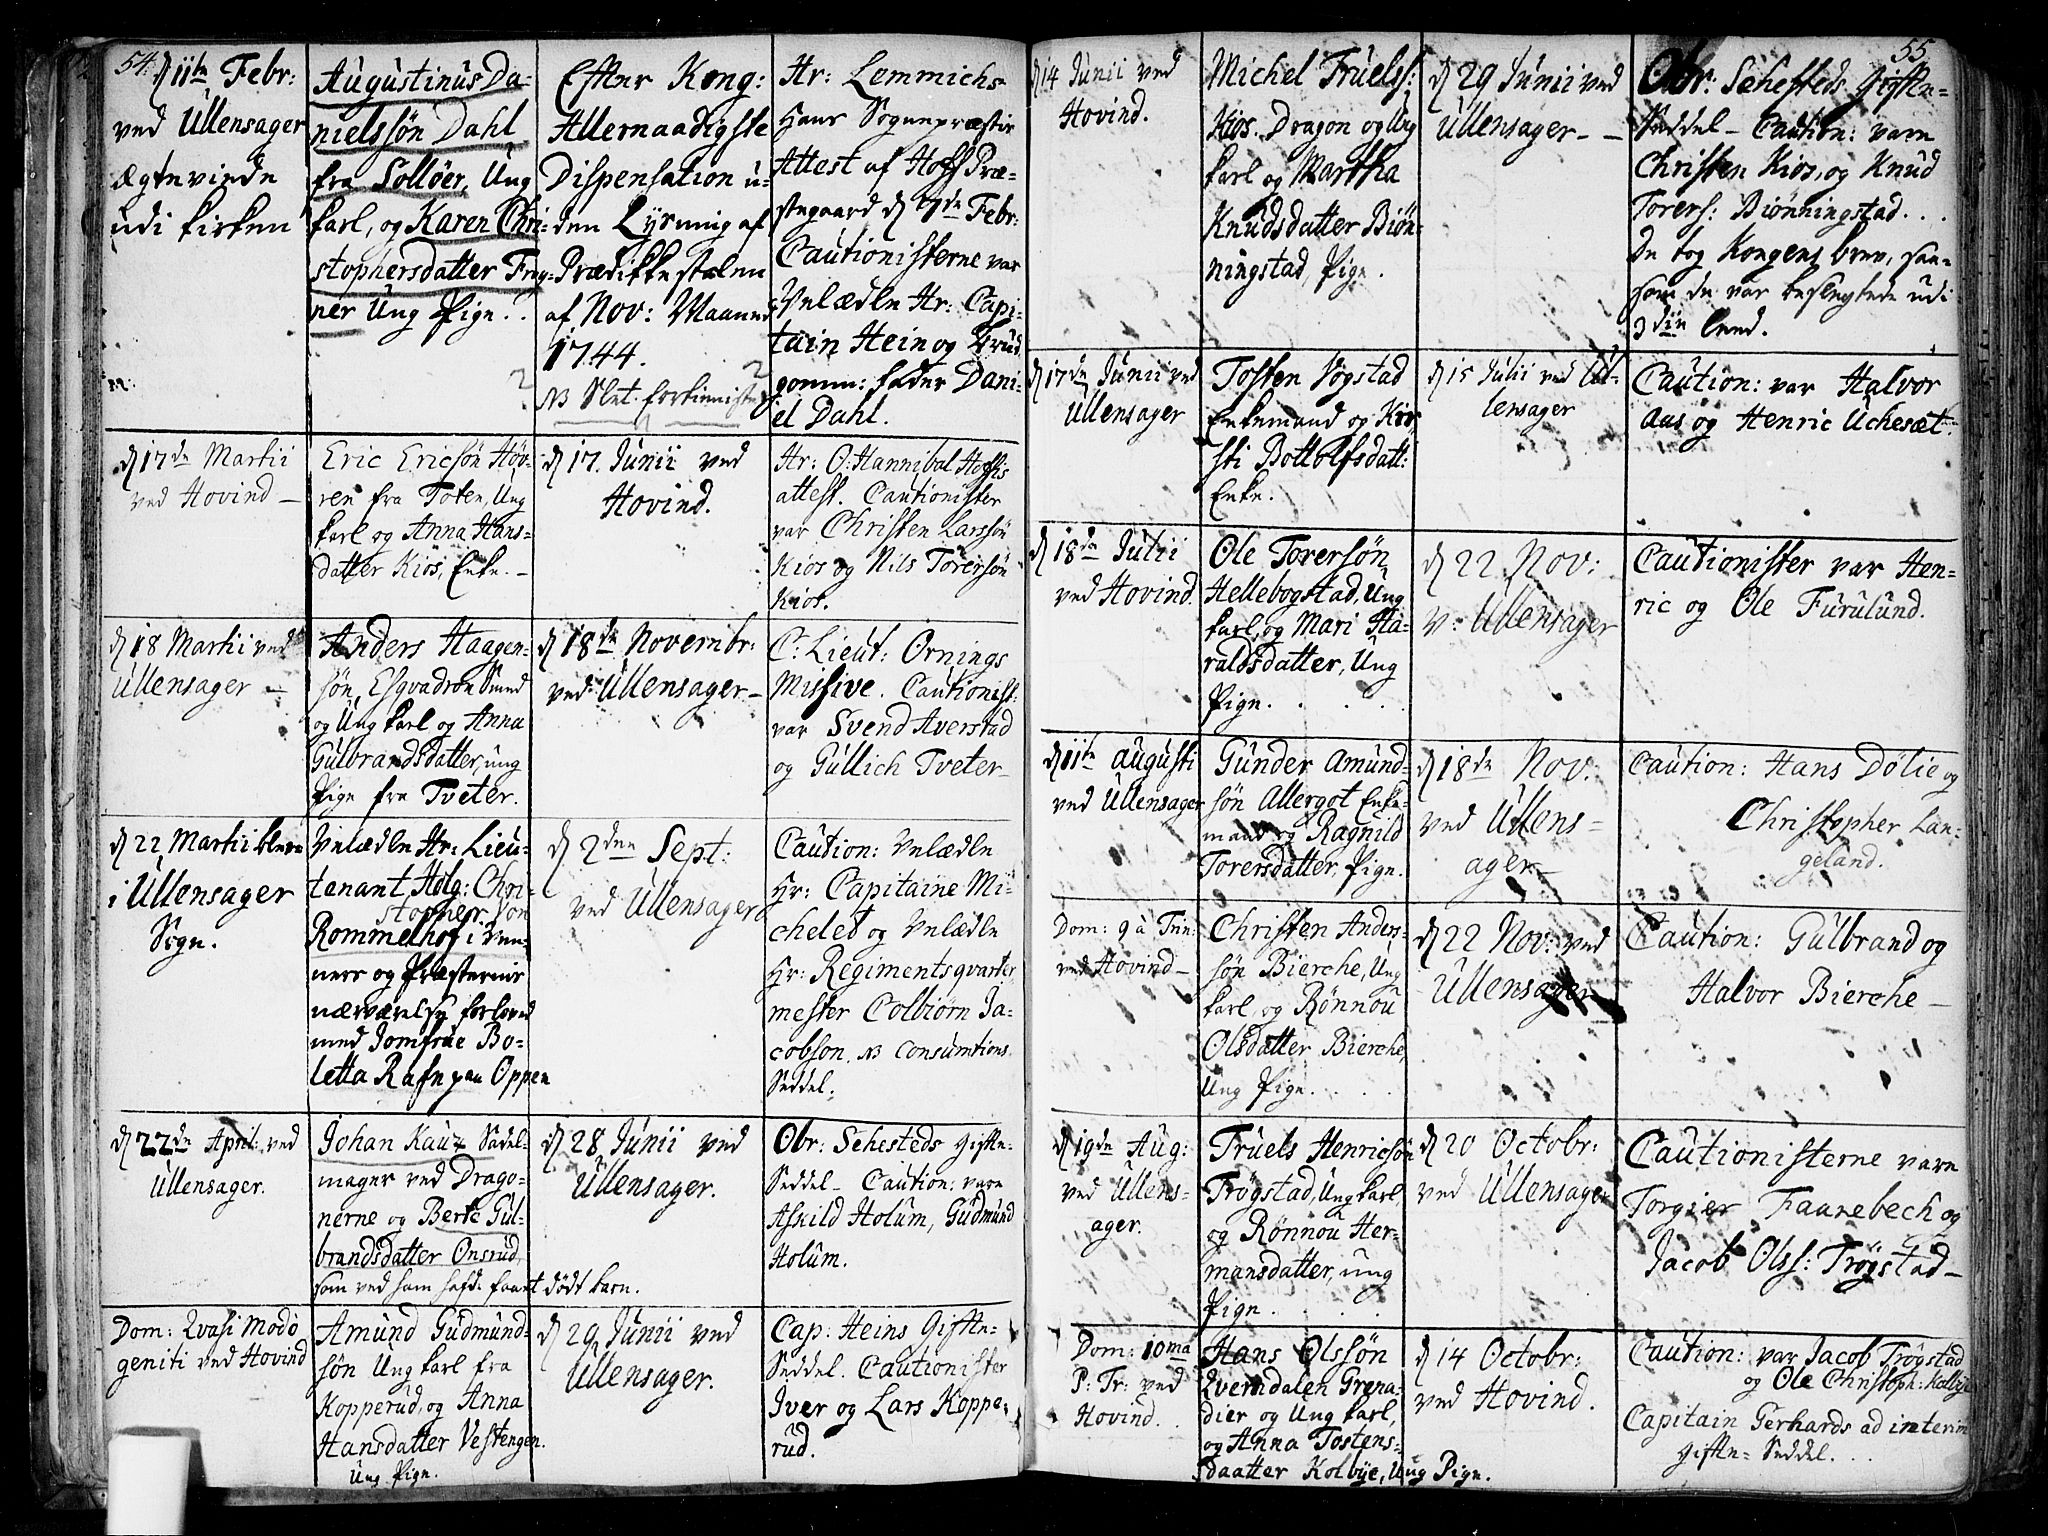 54.
d 11te Febr:
ved Ullensager
ægtevinde
udi kirken
Augustinus Da-
nielssøn Dahl
fra Solløer, Ung
karl, og Karen Chri-
stophersdatter Frey-
ner Ung Pige.
Efter Kong:
Allernaadigste
Dispensation u-
den Lysning af
Prædikkestolen
af Nov: Maaned
1744.
NB Slet.
Hr: Lemmichs
Hans Sognepræstis
Attest af Hoff Præ-
stegaard d 7de Febr:
Cautionisterne var
Velædle Hr: Capi-
tain Hein og Brud
gomm: fader Dani-
el Dahl.
d 17de Martii
ved Hovind –
Eric Ericsøn Høv-
ren fra Toten, Ung
karl og Anna Hans-
datter Kios, Enke. –
d 17. Junii ved
Hovind.
Hr: O: Hannibal Hoffs
attest. Cautionister
var Christen Larssøn
Kios og Nils Torersøn
Kios.
d 18 Martii ved
Ullensager –
Anders Haagen-
søn, Esqvadron Smed
og Ung karl og Anna
Gulbrandsdatter, ung
Pige fra Tveter.
d 18de Novembr:
ved Ullensager –
C: Lieut: Ornings
Missive. Cautionist:
var Svend Averstad
og Gullich Tveter –
d 22 Martii bleve
i Ullensager
Sogn.
Velædle Hr: Lieu-
tenant Holg: Chri-
stopher von
Rommelhof i Ven-
ners og Præsternis
nærværelse forlovet
med Jomfrue Bo-
letta Rafn paa Oppen
d 2den Sept:
ved Ullensager
Caution: Velædle
Hr: Capitaine Mi-
chelet og Velædle
Hr: Regimentsqvarter
mester Colbiørn Ja-
cobson. NB Consumtions
Seddel.
d 22de April: ved
Ullensager.
Johan Kauz Sadel-
mager ved Drago-
nerne og Berte Gul-
brandsdatter Onsrud,
som ved ham hafde faaet dødt barn.
d 28 Junii ved
Ullensager.
Obr: Sehesteds Gifte-
Seddel – Caution: vare
Askild Holum, Gudmund
Holum.
Dom: Qvasi Modo
geniti ved Hovind
Amund Gudmund-
søn Ung karl fra
Kopperud, og Anna
Hansdatter Vestengen.
Ung Pige.
d 29 Junii ved
Ullensager.
Cap: Heins Gifte-
Seddel. Cautionister
Iver og Lars Koppe-
rud.
55
d 14 Junii ved
Hovind.
Michel Truels:
Kios. Dragon og Ung
karl og Martha
Knudsdatter Biøn-
ningstad, Pige.
d 29 Junii ved
Ullensager – –
Obr: Sehesteds Gifte-
Seddel – Caution: vare
Christen Kios, og Knud
Torers: Biønningstad...
De tog Kongens brev, saa-
som de var beslegtede udi
3die leed.
d 17de Junii ved
Ullensager
Tosten Vogstad
Enkemand og Kir-
sti Bottolfsdatt:
Enke.
d 15 Julii ved Ul-
lensager
Caution: var Halvor
Aas og Henric Uchesæt.
d 18de Julii
ved Hovind.
Ole Torersøn
Hellebogstad, Ung
karl, og Mari Ha-
raldsdatter, Ung
Pige. . . .
d 22 Nov:
v: Ullensager
Cautionister var Hen-
ric og Ole Furulund.
d 11te Augusti
ved Ullensager
Gunder Amund-
søn Allergot Enke-
mand og Ragnild
Torersdatter, Pige.
d 18de Nov:
ved Ullens-
ager –
Caution: Hans Dølie og
Christopher Lan-
geland.
Dom: 9 à Trin:
ved Hovind –
Christen Anders-
søn Bierche, Ung
karl, og Rønnou
Olsdatter Bierche,
Ung Pige. . . .
d 22 Nov: ved
Ullensager
Caution: Gulbrand og
Halvor Bierche –
d 19de Aug:
ved Ullens-
ager.
Truels Henricsøn
Trøgstad, Ung karl,
og Rønnou Her-
mansdatter, ung
Pige . . .
d 20 Octobr:
ved Ullensager
Cautionisterne vare
Torgier Faanebech og
Jacob Olss: Trøgstad –
Dom: 10ma
P: Tr: ved
Hovind.
Hans Olssøn
Qverndalen Grena-
dier og Ung karl,
og Anna Tostens-
daatter Kolbye, Ung Pige.
d 14 Octobr:
ved Hovind.
Caution: var Jacob Trøgstad
og Ole Christoph: Kolbye
Capitain Gerhards ad interim
Gifte-Seddel. . .